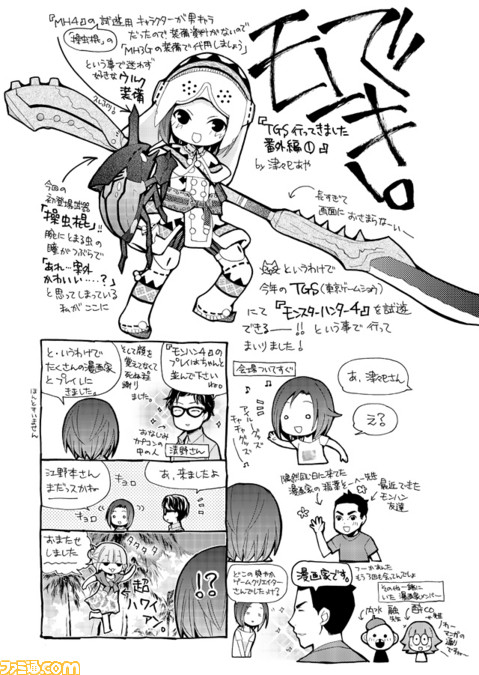 モニでき。
『TGS行ってきました
番外編①』
by 津々巳あや
『MH4』の試遊用キャラクターが男キャラ
だったので装備資料がないので
『MH3Gの装備で代用しましょう』
という事で迷わず
好きなウルク
装備
操虫棍の
今回の
初登場武器
『操虫棍』!!
腕にとまる虫の
瞳がつぶらで
「あれ…案外
かわいい…・・?」
と思ってしまっている
私がここに
長すぎて
画面に おさまらなーい
というわけで
今年のTGS(東京ゲームショウ)
にて『モンスターハンター4』を試遊
できるーー!! という事で行って
まいりました!
会場ついてすぐ
あ、津々巳さん
え?
アイルー
グッズ
チャチャ
グッズ
最近できた
モンハン
友達
漫画家です。
どこの爽やか
ゲームクリエイター
さんでしたっけ?
その他一緒に
いた漫画家メンバー
内水 融先生
酢CO.先生
『モンハン4』の
プレイはちゃんと
並んで下さい
ね
そして顔を
覚えてなくて
死ぬ程
謝り
ました。
おなじみ
カプコンの
中の人
江野本さん
と・いうわけで
たくさんの漫画家
とプレイしに
きました。
ほんとすいません
あ、来ましたよ
江野本さん
まだっスかねー
キョロ
キョロ
おまたせ
しました
タタタタ
超
ハワイ
アン。
!?
ファミ通.com